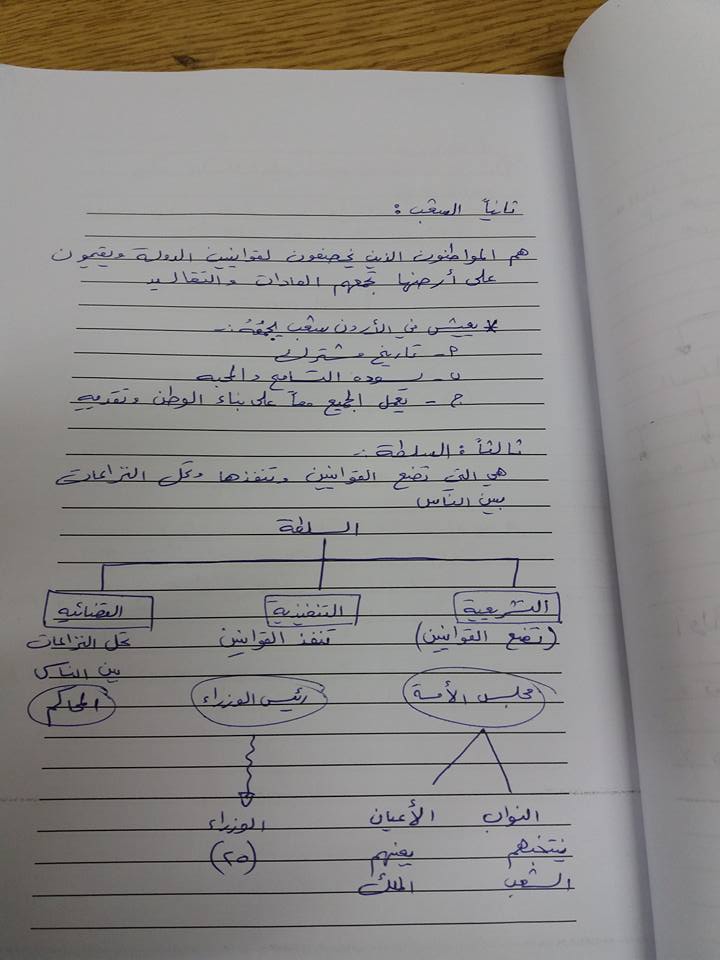 ثانياً الشعب :
هم المواطنون الذين يخضعون لقوانين الدولة ويقيمون
على أرضها تجمعهم العادات والتقاليد
* يعيش في الأردن شعب يجمعه :-
أ- تاريخ مشترك
ب- يسوده التسامح والمحبه
ج- يعمل الجميع معاً على بناء الوطن وتقدمه
ثالثاً : السلطة :-
هي التي تضع القوانين وتنفذها وتحل النزاعات
بين الناس
السلطة
التشريعية التنفيذية القضائيه
(تضع القوانين) تنفذ القوانين تحل النزاعات
بين الناس
مجلس الأمة رئيس الوزراء المحاكم
النواب الأعيان الوزراء
ينتخبهم يعينهم (٢٥)
الشعب الملك